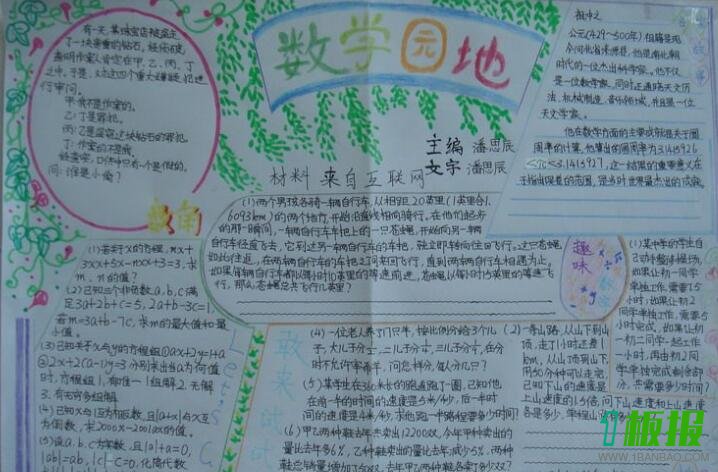 数学园地
主编 潘思辰
文字 潘思辰
材料 来自互联网
有一天,某珠宝店被盗走
了一块贵重的钻石。经侦破,
查明作案人肯定在甲、乙、丙、丁
之中。于是,对这四个重大嫌疑犯进
行审问。
甲:我不是作案的。
乙:丁是罪犯。
丙:乙是盗窃这块钻石的罪犯
丁:作案的不是我。
经查实,四人中只有一个是假的。
问:谁是小偷?
祖冲之
公元(429~500年)祖籍是现
今河北省涞源县,他是南北朝
时代的一位杰出科学家。他不仅
是一位数学家,同时还通晓天文历
法、机械制造、音乐领域,并且是一位
天文学家。
他在数学方面的主要成就是关于圆
周率的计算,他算出的圆周率为3.1415926
<π<3.1415927,这一结果的重要意义在
于指出误差的范围,是当时世界最杰出的成就。
(1)两个男孩各骑一辆自行车,从相距20英里(1英里合1.
6093km)的两个地方,开始沿直线相向骑行。在他们起步
的那一瞬间,一辆自行车车把上的一只苍蝇,开始向另一辆
自行车径直飞去。它到达另一辆自行车的车把,就立即转向往回飞行。这只苍蝇
如此往返,在两辆自行车的车把之间来回飞行,直到两辆自行车相遇为止。
如果每辆自行车都以每小时10英里的等速前进,苍蝇以每小时15英里的等速飞
行,那么苍蝇总共飞行了几英里?
趣味
(1)若关于x的方程,mx+
3xx+5x-nxx+3=3.求
m、n的值?
(2)已知三个非负数a,b,c满
足3a+2b+c=5,2a+b-3c=1,
若m=3a+b-7c,求m的最大值和最
小值。
(3)已知关于x与y的方程组①ax+2y=1+a
②2x+2(a-1)y=3分别求出当a为何值
时,方程组1,有唯一1组解2.无解
3.有无穷多组解
(4)已知x与1互为相反数,且|a+x|与x互
(5)设a,b,c为非零实数,且|a|+a=0,
|ab|=ab,|c|-c=0,化简代数
敢来试试
(4)一位老人养了17只羊,按比例分给3个儿
(5)某学生在360米长的跑道跑了一圈,已知他,
在前一半的时间的速度是5米/秒,后一半时
间的速度是4米/秒,求他跑一半路程要多少时间?
(6)甲乙两种鞋去年共卖出12200双,今年甲种卖出的
量比去年多6%,乙种鞋卖出的量比去年减少5%.两种
(2)一青山路,从山下到山
(1)某中学的学生自
己动手整修操场,
如果让初一同学
单独工作,需要7.5
小时;如果初2同
学单独工作,需要5
小时完成。如果让初一
初二同学一起工作
一小时,再由初2同
学单独完成剩余部
分,共需要多少时间?
1板报
WWW.1BANBAO.COM